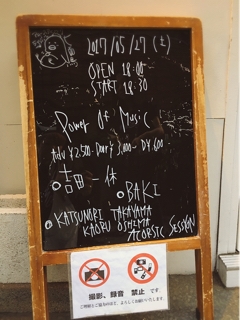 2017/05/27(土)
OPEN 18:00
START 18:30
Power Of Music
Adv ¥2,500- Door ¥3,000- D¥600
○吉田一休
○BAKI
○KATSUNORI TAKAYAMA
KAORU OSHIMA
ACORSTIC SESSION
撮影、録音 禁止 です。
ご理解とご協力のほど、よろしくお願いいたします。